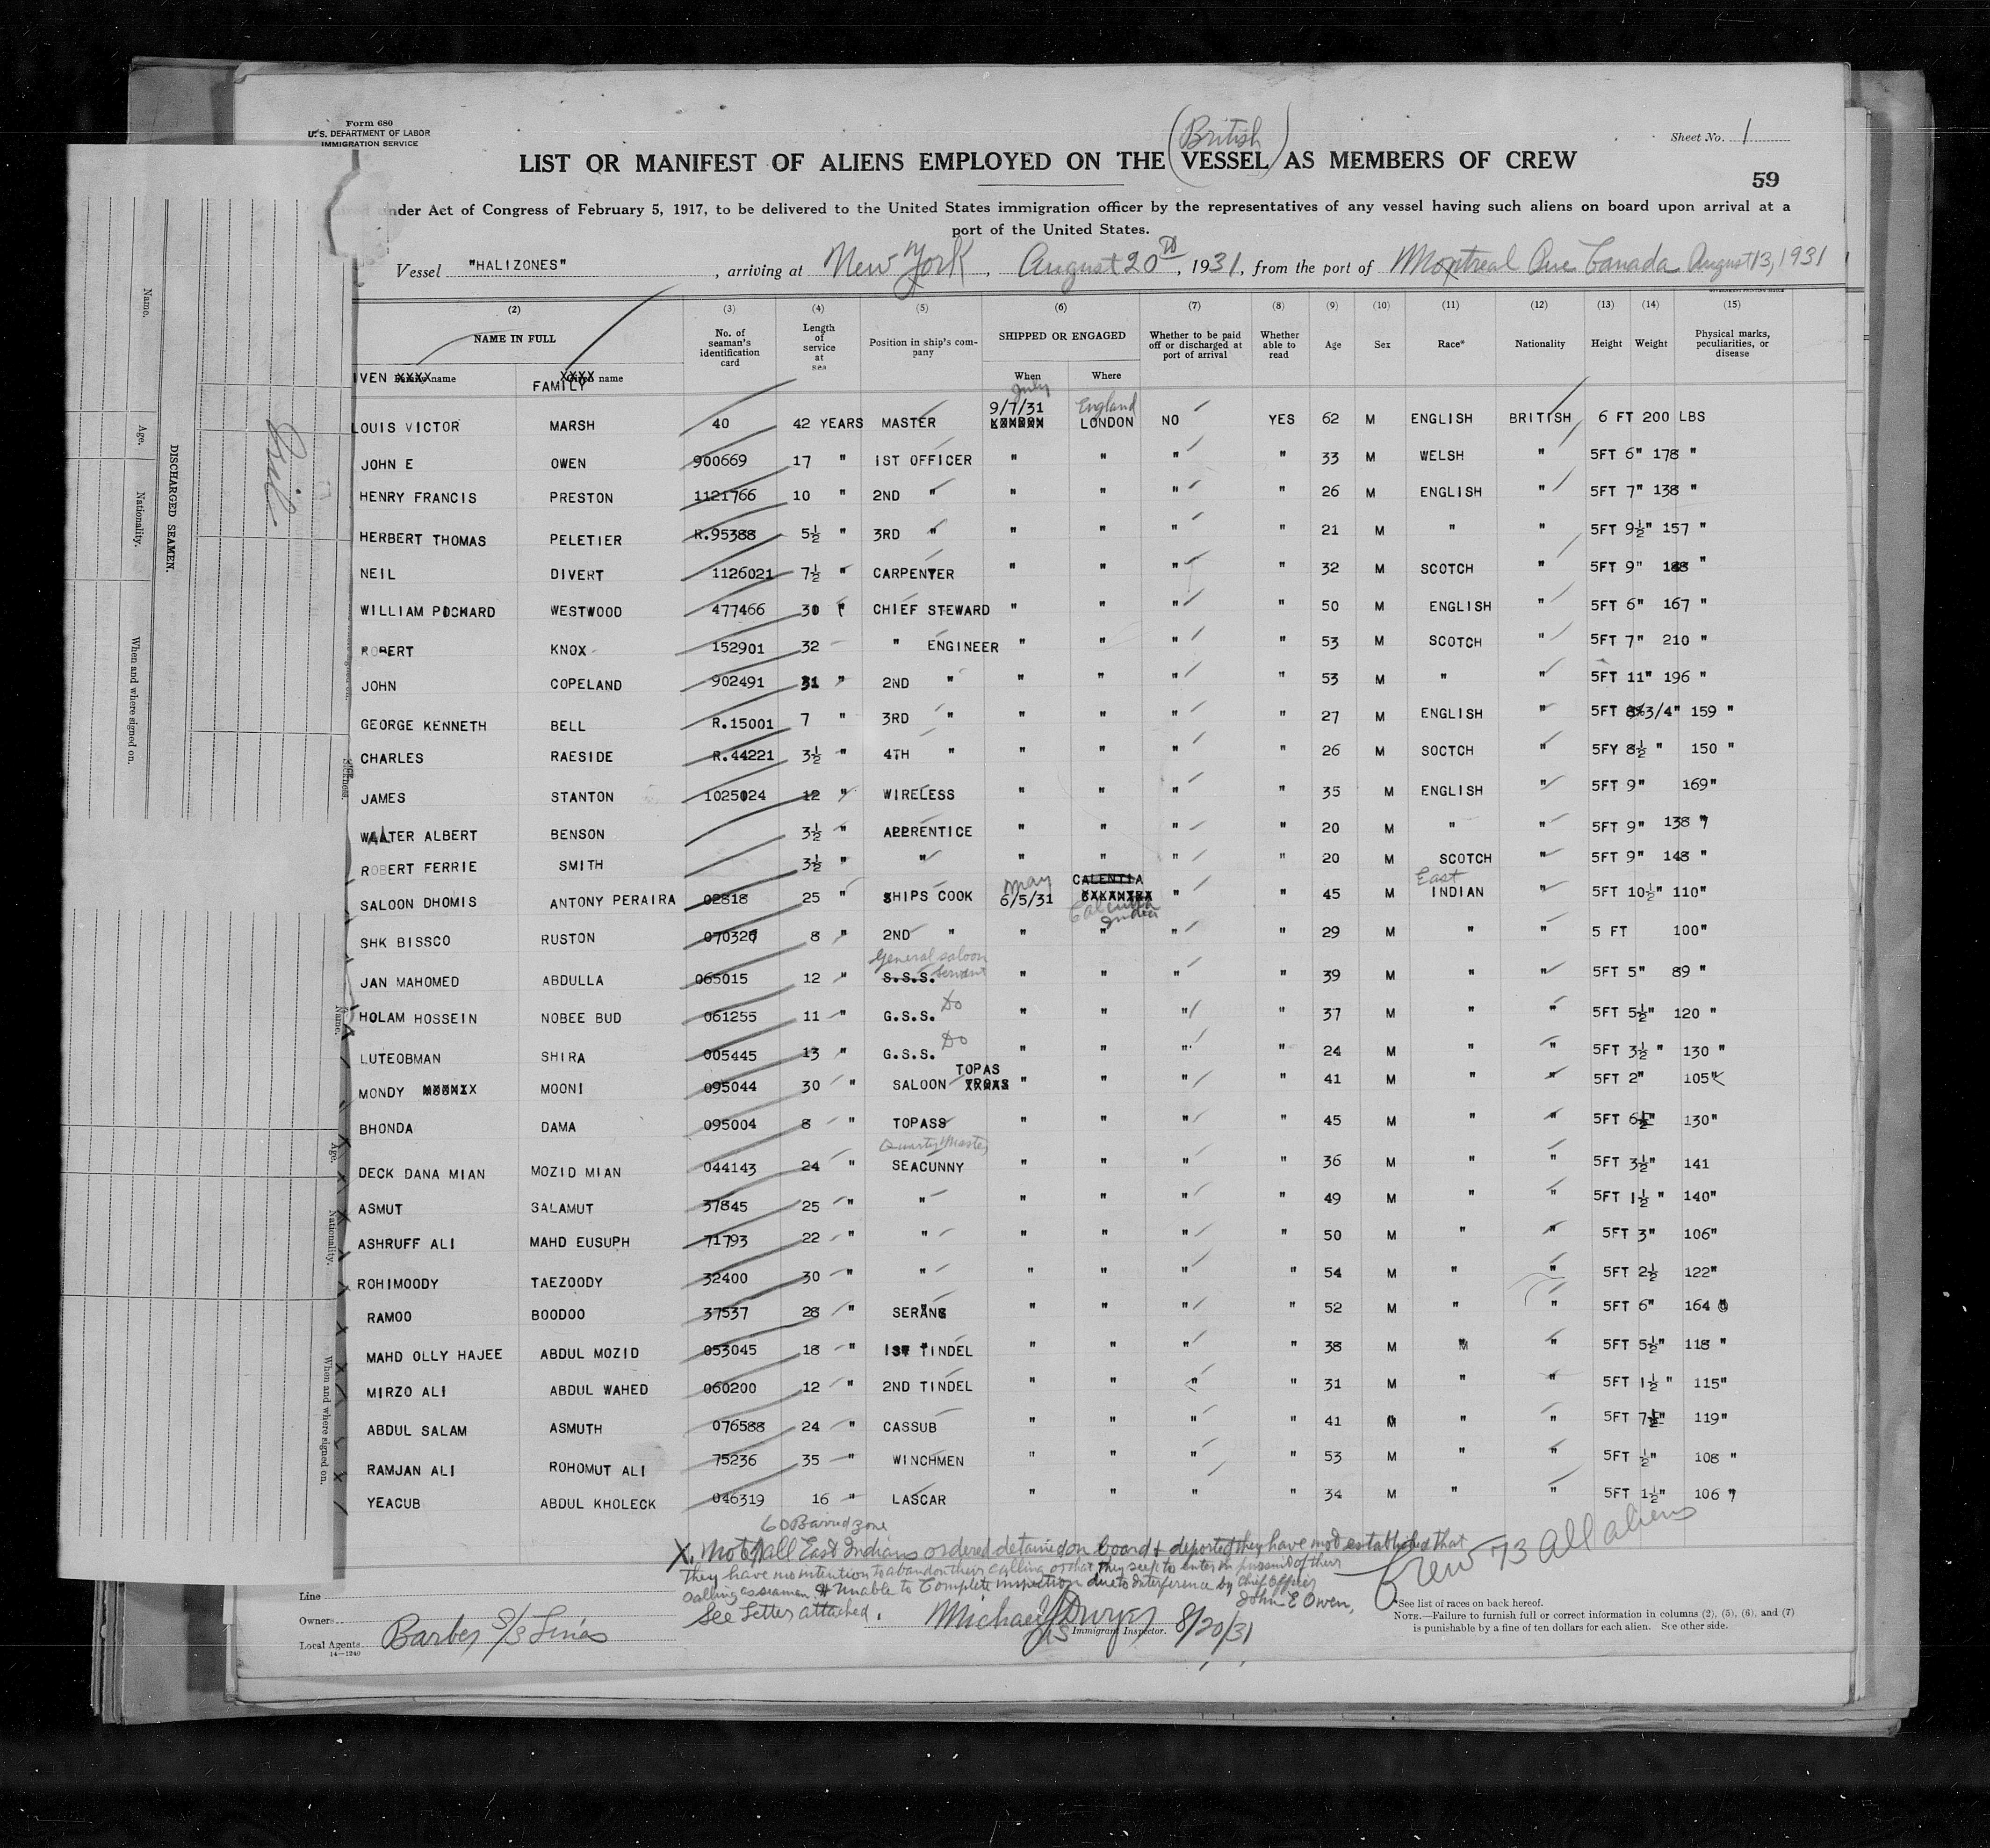 Form 680
U. S. DEPARTMENT OF LABOR
IMMIGRATION SERVICE
Sheet No. 1
(British)
LIST OR MANIFEST OF ALIENS EMPLOYED ON THE VESSEL AS MEMBERS OF CREW
59
nder Act of Congress of February 5, 1917, to be delivered to the United States immigration officer by the representatives of any vessel having such aliens on board upon arrival at a
port of the United States.
Vessel "HALIZONES", arriving at New York, August 20th, 1931, from the port of Montreal Que Canada August 13, 1931
(2) (3) (4) (5) (6) (7) (8) (9) (10) (11) (12) (13) (14) (15)
NAME IN FULL No. of seaman's identification card Length of service at sea Position in ship's company SHIPPED OR ENGAGED When Where Whether to be paid off or discharged at port of arrival Whether able to read Age Sex Race* Nationality Height Weight Physical marks, peculiarities, or disease
IVEN XXXX name FAMILY XXXX name
July England
LOUIS VICTOR MARSH 40 42 YEARS MASTER 9/7/31 LONDON NO YES 62 M ENGLISH BRITISH 6 FT 200 LBS
JOHN E OWEN 900669 17 " 1ST OFFICER " " " " 33 M WELSH " 5FT 6" 178 "
HENRY FRANCIS PRESTON 1121766 10 " 2ND " " " " " 26 M ENGLISH " 5FT 7" 138 "
HERBERT THOMAS PELETIER R.95388 5½ " 3RD " " " " " 21 M " " 5FT 9½" 157 "
NEIL DIVERT 1126021 7½ " CARPENTER " " " " 32 M SCOTCH " 5FT 9" 188 "
WILLIAM POCHARD WESTWOOD 477466 30 " CHIEF STEWARD " " " " 50 M ENGLISH " 5FT 6" 167 "
ROBERT KNOX 152901 32 " ENGINEER " " " " 53 M SCOTCH " 5FT 7" 210 "
JOHN COPELAND 902491 31 " 2ND " " " " " 53 M " " 5FT 11" 196 "
GEORGE KENNETH BELL R.15001 7 " 3RD " " " " " 27 M ENGLISH " 5FT 8 3/4" 159 "
CHARLES RAESIDE R.44221 3½ " 4TH " " " " " 26 M SOCTCH " 5FY 8½ " 150 "
JAMES STANTON 1025024 12 " WIRELESS " " " " 35 M ENGLISH " 5FT 9" 169"
WALTER ALBERT BENSON 3½ " APPRENTICE " " " " 20 M " " 5FT 9" 138 "
ROBERT FERRIE SMITH 3½ " " " " " " 20 M SCOTCH " 5FT 9" 148 "
May CALENTIA East
SALOON DHOMIS ANTONY PERAIRA 02818 25 " SHIPS COOK 6/5/31 Calcutta India " " 45 M INDIAN " 5FT 10½" 110"
SHK BISSCO RUSTON 070326 8 " 2ND " " " " " 29 M " " 5 FT 100"
General saloon servant
JAN MAHOMED ABDULLA 065015 12 " S.S.S. " " " " 39 M " " 5FT 5" 89 "
HOLAM HOSSEIN NOBEE BUD 061255 11 " G.S.S. Do " " " " 37 M " " 5FT 5½" 120 "
LUTEOBMAN SHIRA 005445 13 " G.S.S. Do " " " " 24 M " " 5FT 3½ " 130 "
TOPAS
MONDY MOONI 095044 30 " SALOON " " " " 41 M " " 5FT 2" 105"
BHONDA DAMA 095004 8 " TOPASS " " " " 45 M " " 5FT 6½" 130"
Quarter Master
DECK DANA MIAN MOZID MIAN 044143 24 " SEACUNNY " " " " 36 M " " 5FT 3½" 141
ASMUT SALAMUT 37845 25 " " " " " " 49 M " " 5FT 1½ " 140"
ASHRUFF ALI MAHD EUSUPH 71793 22 " " " " " " 50 M " " 5FT 3" 106"
ROHIMOODY TAEZOODY 32400 30 " " " " " " 54 M " " 5FT 2½ 122"
RAMOO BOODOO 37537 28 " SERANG " " " " 52 M " " 5FT 6" 164
MAHD OLLY HAJEE ABDUL MOZID 053045 18 " 1ST TINDEL " " " " 38 M " " 5FT 5½" 118 "
MIRZO ALI ABDUL WAHED 060200 12 " 2ND TINDEL " " " " 31 M " " 5FT 1½ " 115"
ABDUL SALAM ASMUTH 076588 24 " CASSUB " " " " 41 M " " 5FT 7½" 119"
RAMJAN ALI ROHOMUT ALI 75236 35 " WINCHMEN " " " " 53 M " " 5FT ½" 108 "
YEACUB ABDUL KHOLECK 046319 16 " LASCAR " " " " 34 M " " 5FT 1½" 106 "
60 Barred zone
X. all East Indians ordered detained on board & deported they have not established that
they have no intention to abandon their calling or that they seek to enter in pursuit of their
calling as seamen. Unable to Complete inspection due to interference by Chief Officer
John E Owen,
See Letter attached.
Crew 73 All aliens
Michael J Dwyer 8/20/31
Immigrant Inspector.
Line
Owners
Local Agents Barber S/S Lines
14—1240
*See list of races on back hereof.
NOTE.—Failure to furnish full or correct information in columns (2), (5), (6), and (7)
is punishable by a fine of ten dollars for each alien. See other side.
DISCHARGED SEAMEN.
Name.
Age.
Nationality.
When and where signed on.
Name.
Age.
Nationality.
When and where signed on.